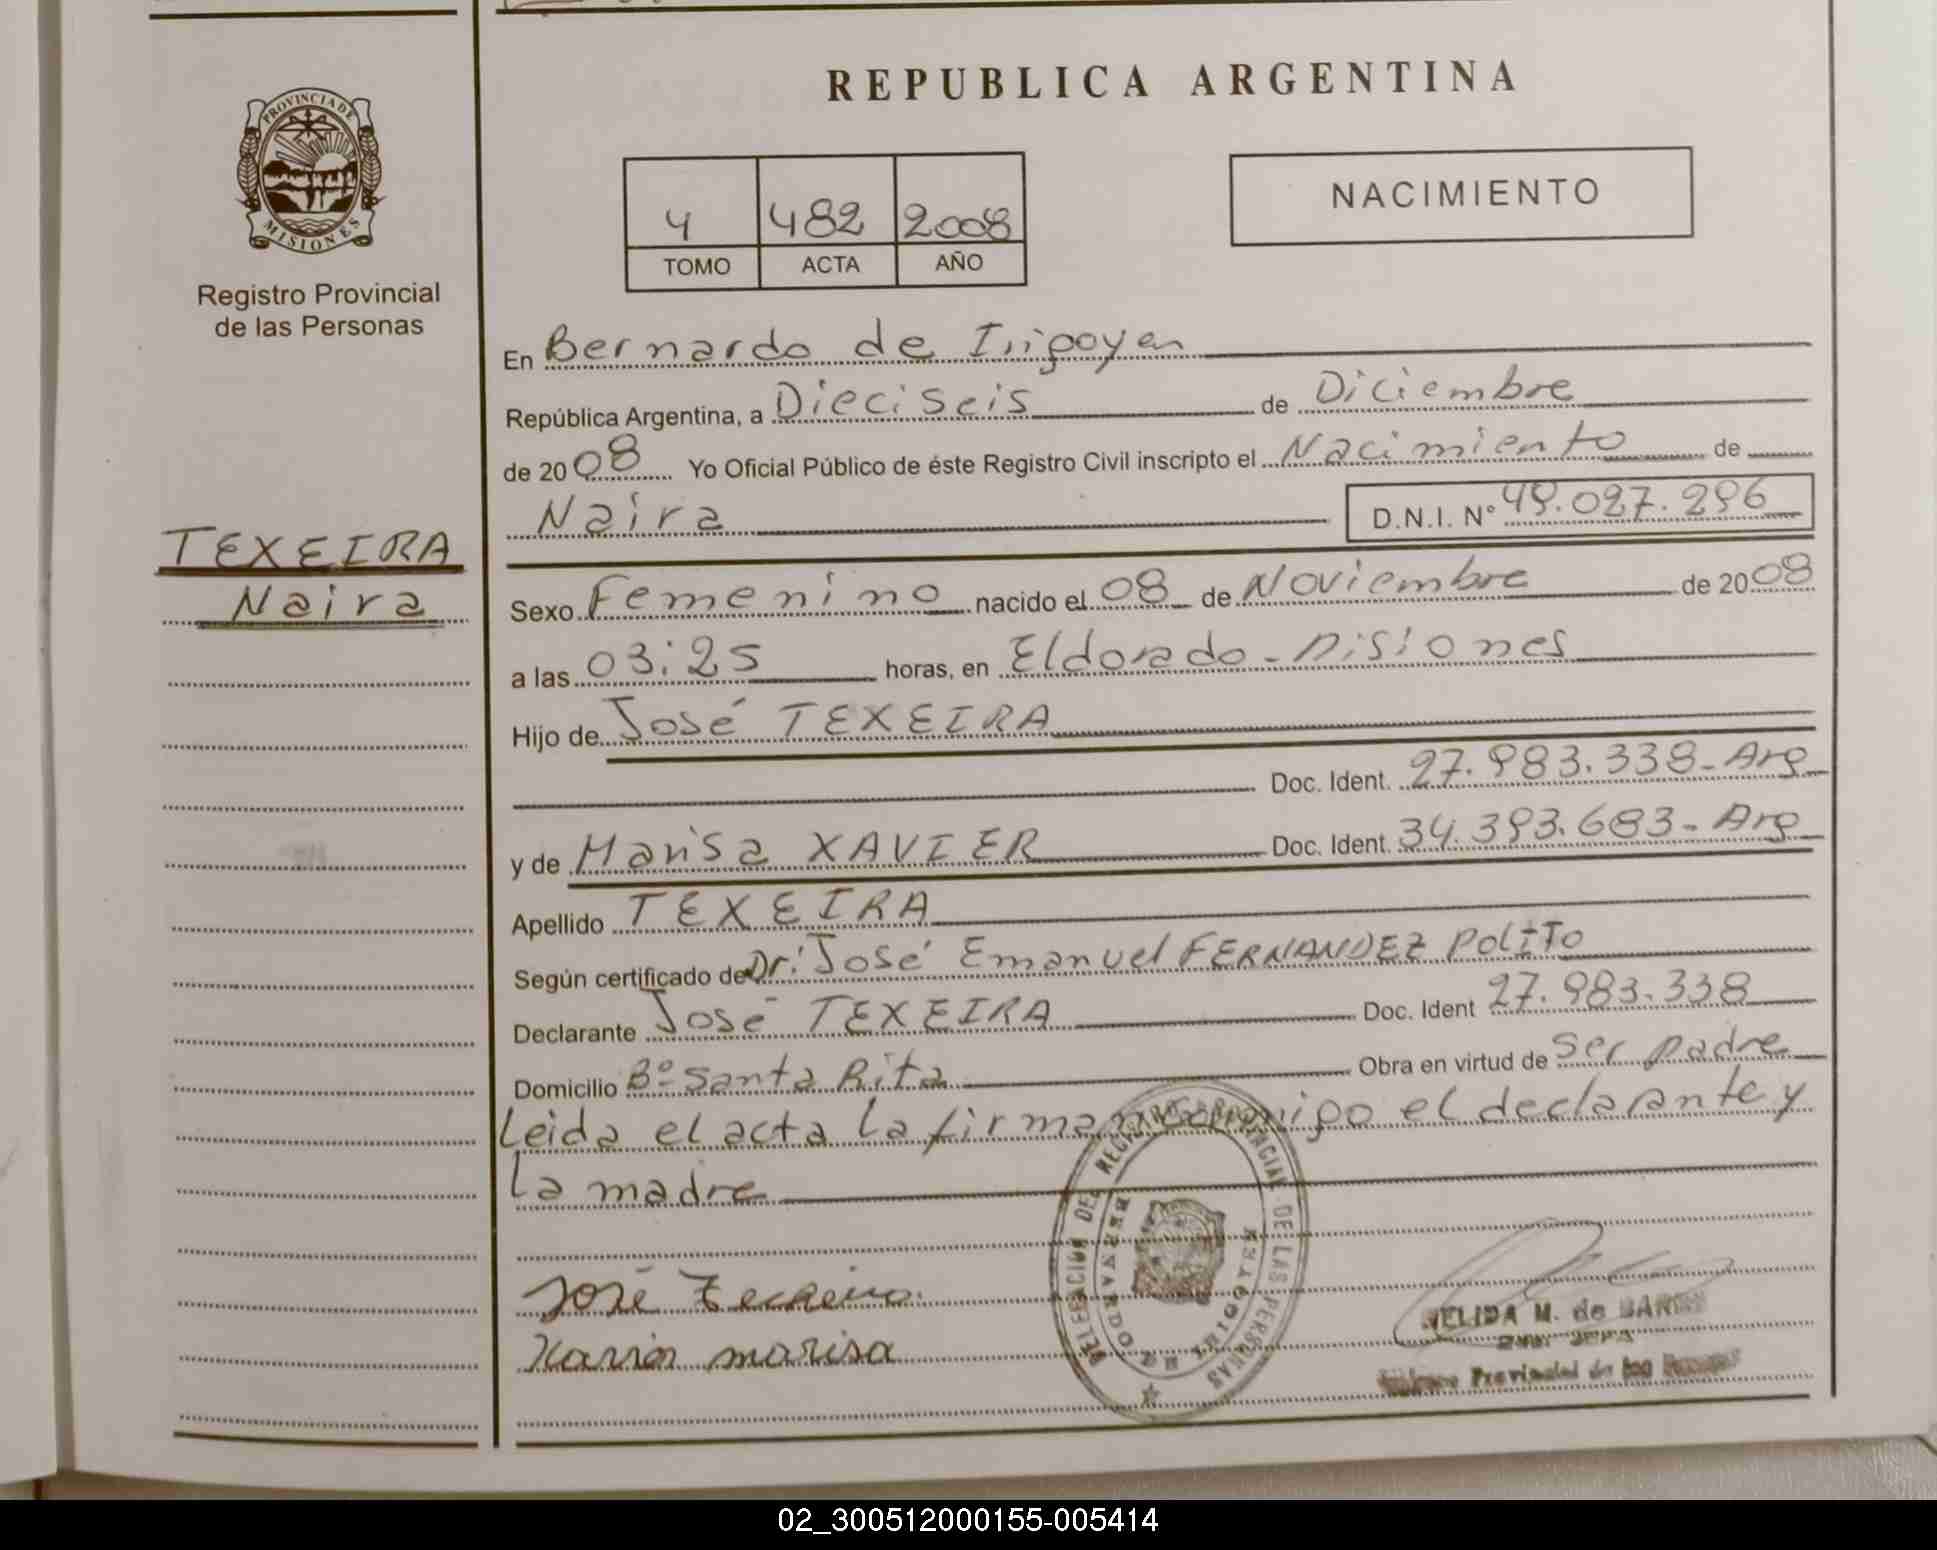 REPUBLICA ARGENTINA
PROVINCIA DE
MISIONES
Registro Provincial
de las Personas
4 482 2008
TOMO ACTA AÑO
NACIMIENTO
En Bernardo de Irigoyen
República Argentina, a Dieciseis de Diciembre
de 2008 Yo Oficial Público de éste Registro Civil inscripto el Nacimiento de
Naira D.N.I. Nº 49.027.296
TEXEIRA
Naira
Sexo Femenino nacido el 08 de Noviembre de 2008
a las 03:25 horas, en Eldorado - Misiones
Hijo de José TEXEIRA
Doc. Ident. 27.983.338 - Arg
y de Marisa XAVIER Doc. Ident. 34.393.683 - Arg
Apellido TEXEIRA
Según certificado de Dr. José Emanuel FERNANDEZ POLITO
Declarante José TEXEIRA Doc. Ident 27.983.338
Domicilio Bº Santa Rita Obra en virtud de ser padre
Leida el acta la firman conmigo el declarante y
la madre
DELEGACION DEL REGISTRO PROVINCIAL DE LAS PERSONAS
BERNARDO DE IRIGOYEN
José
marisa
VELIDA M. de
Provincial de las
02_300512000155-005414